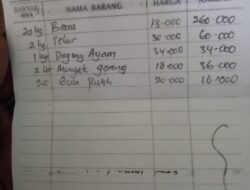 BANYAKNYA NAMA BARANG HARGA
20 kg Beras 13.000 260.000
2 kg Telur 30.000 60.000
1 kg Daging Ayam 34.000 34.000
2 kg Minyak goreng 18.000 36.000
Gula Putih 20.000